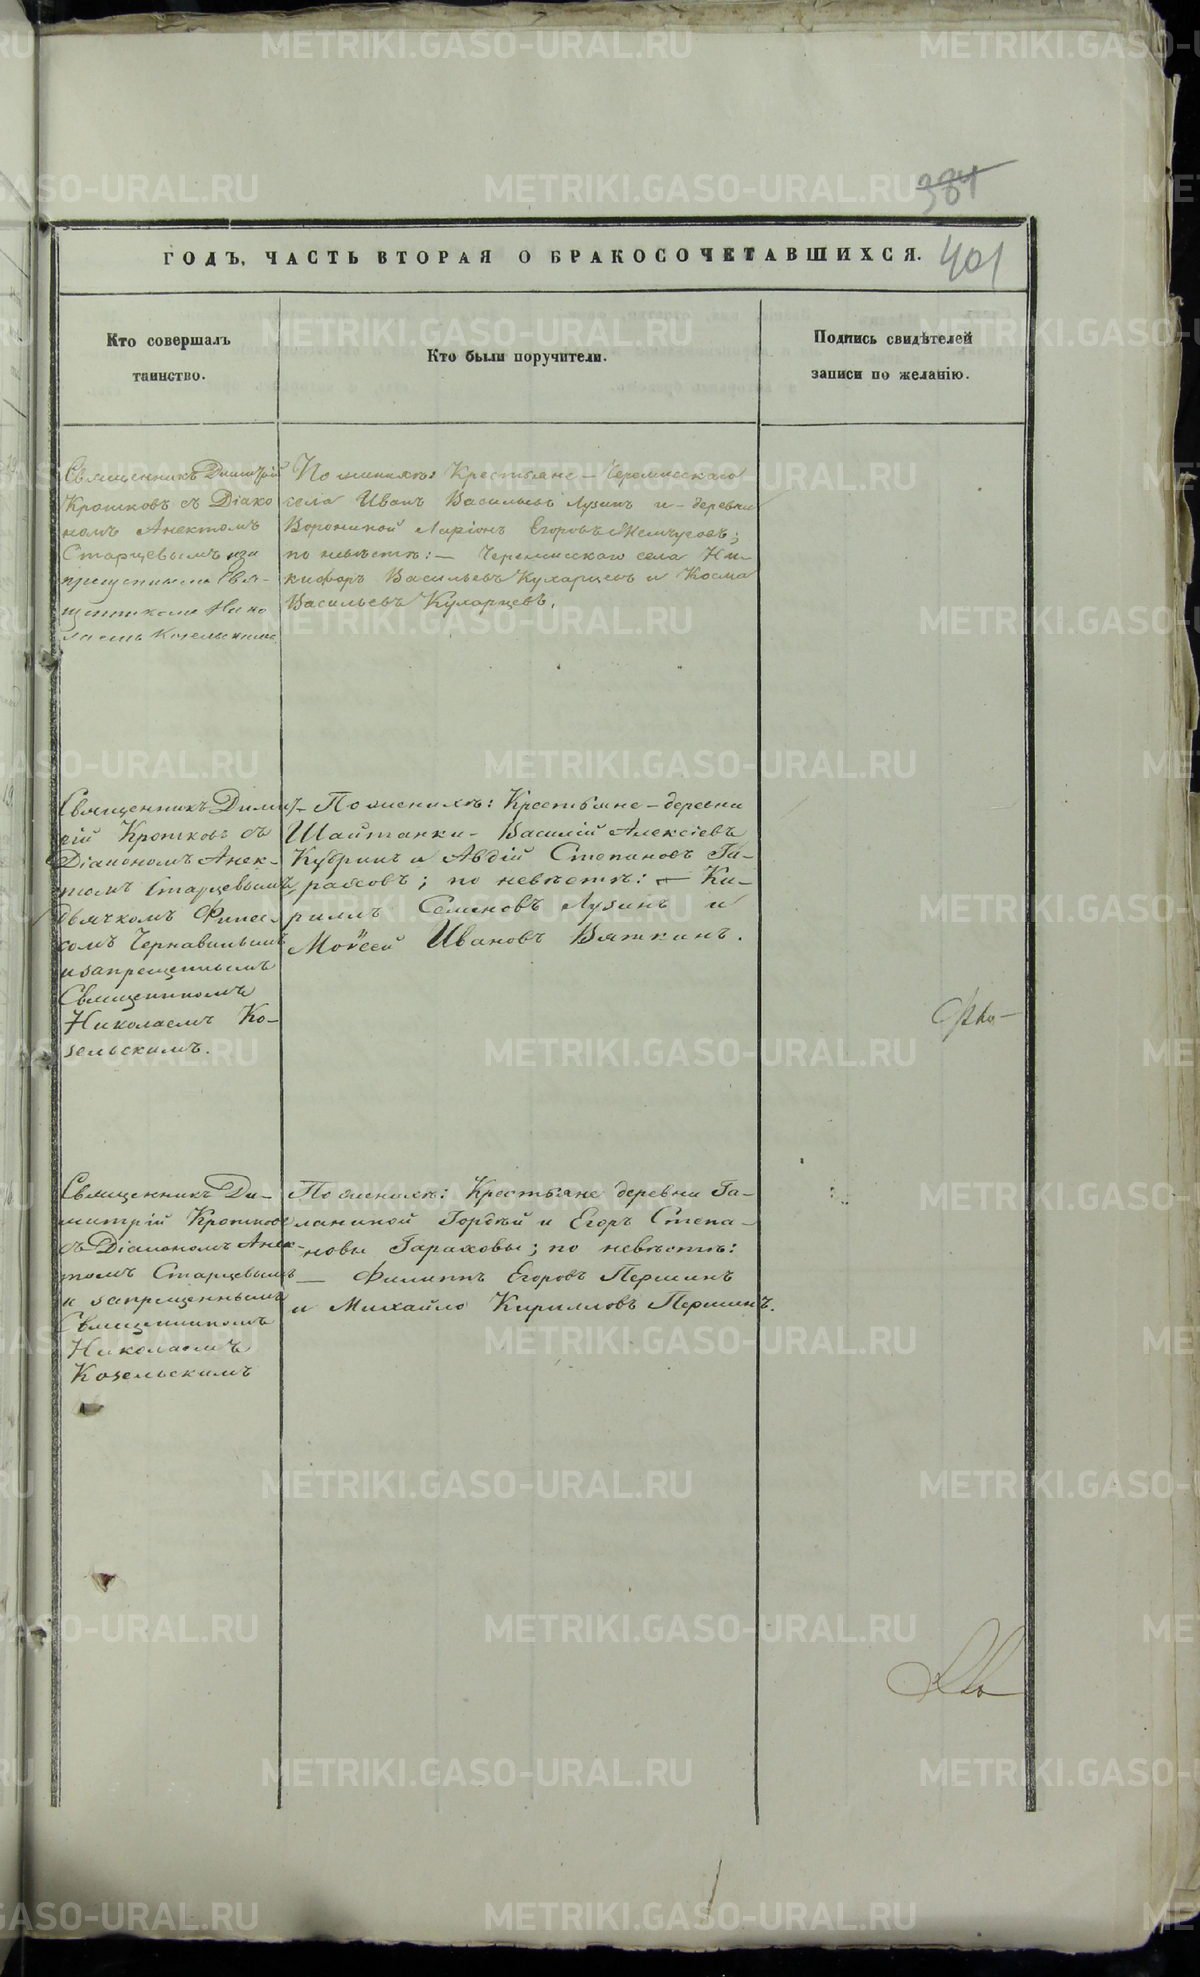 384
401
ГОДЪ, ЧАСТЬ ВТОРАЯ О БРАКОСОЧЕТАВШИХСЯ.
Кто совершалъ
таинство.
Кто были поручители.
Подпись свидѣтелей
записи по желанію.
Священникъ Димитрій
Кротковъ съ Діако
номъ Анектомъ
Старцевымъ и за
прещеннымъ Свя-
щенникомъ Нико
лаемъ Козельскимъ
По женихѣ: Крестьяне - Черемисскаго
села Иванъ Васильевъ Лузинъ и - деревни
Ворониной Ларіонъ Егоровъ
по невѣстѣ: - Черемисскаго села Ни-
кифоръ Васильевъ Кухарцевъ и Косма
Васильевъ Кухарцевъ.
Священникъ Димит-
рій Кротковъ съ
Діакономъ Анек-
томъ Старцевымъ,
дьячкомъ Финеѣ-
сомъ
и запрещеннымъ
Священникомъ
Николаемъ Ко-
зельскимъ.
По женихѣ: Крестьяне - деревни
Шайтанки - Василій Алексіевъ
Кубринъ и Авдій Степановъ Га-
раховъ; по невѣстѣ: - Ки-
риллъ Семеновъ Лузинъ и
Моѵсей Ивановъ Вяткинъ.
Священникъ Ди-
митрій Кротковъ
съ Діакономъ Анек-
томъ Старцевымъ
и запрещеннымъ
Священникомъ
Николаемъ
Козельскимъ
По женихѣ: Крестьяне деревни Га-
ланиной Гордѣй и Егоръ Степа-
новы Гараховы; по невѣстѣ:
- Филиппъ Егоровъ Першинъ
и Михайло Кирилловъ Першинъ.
METRIKI.GASO-URAL.RU